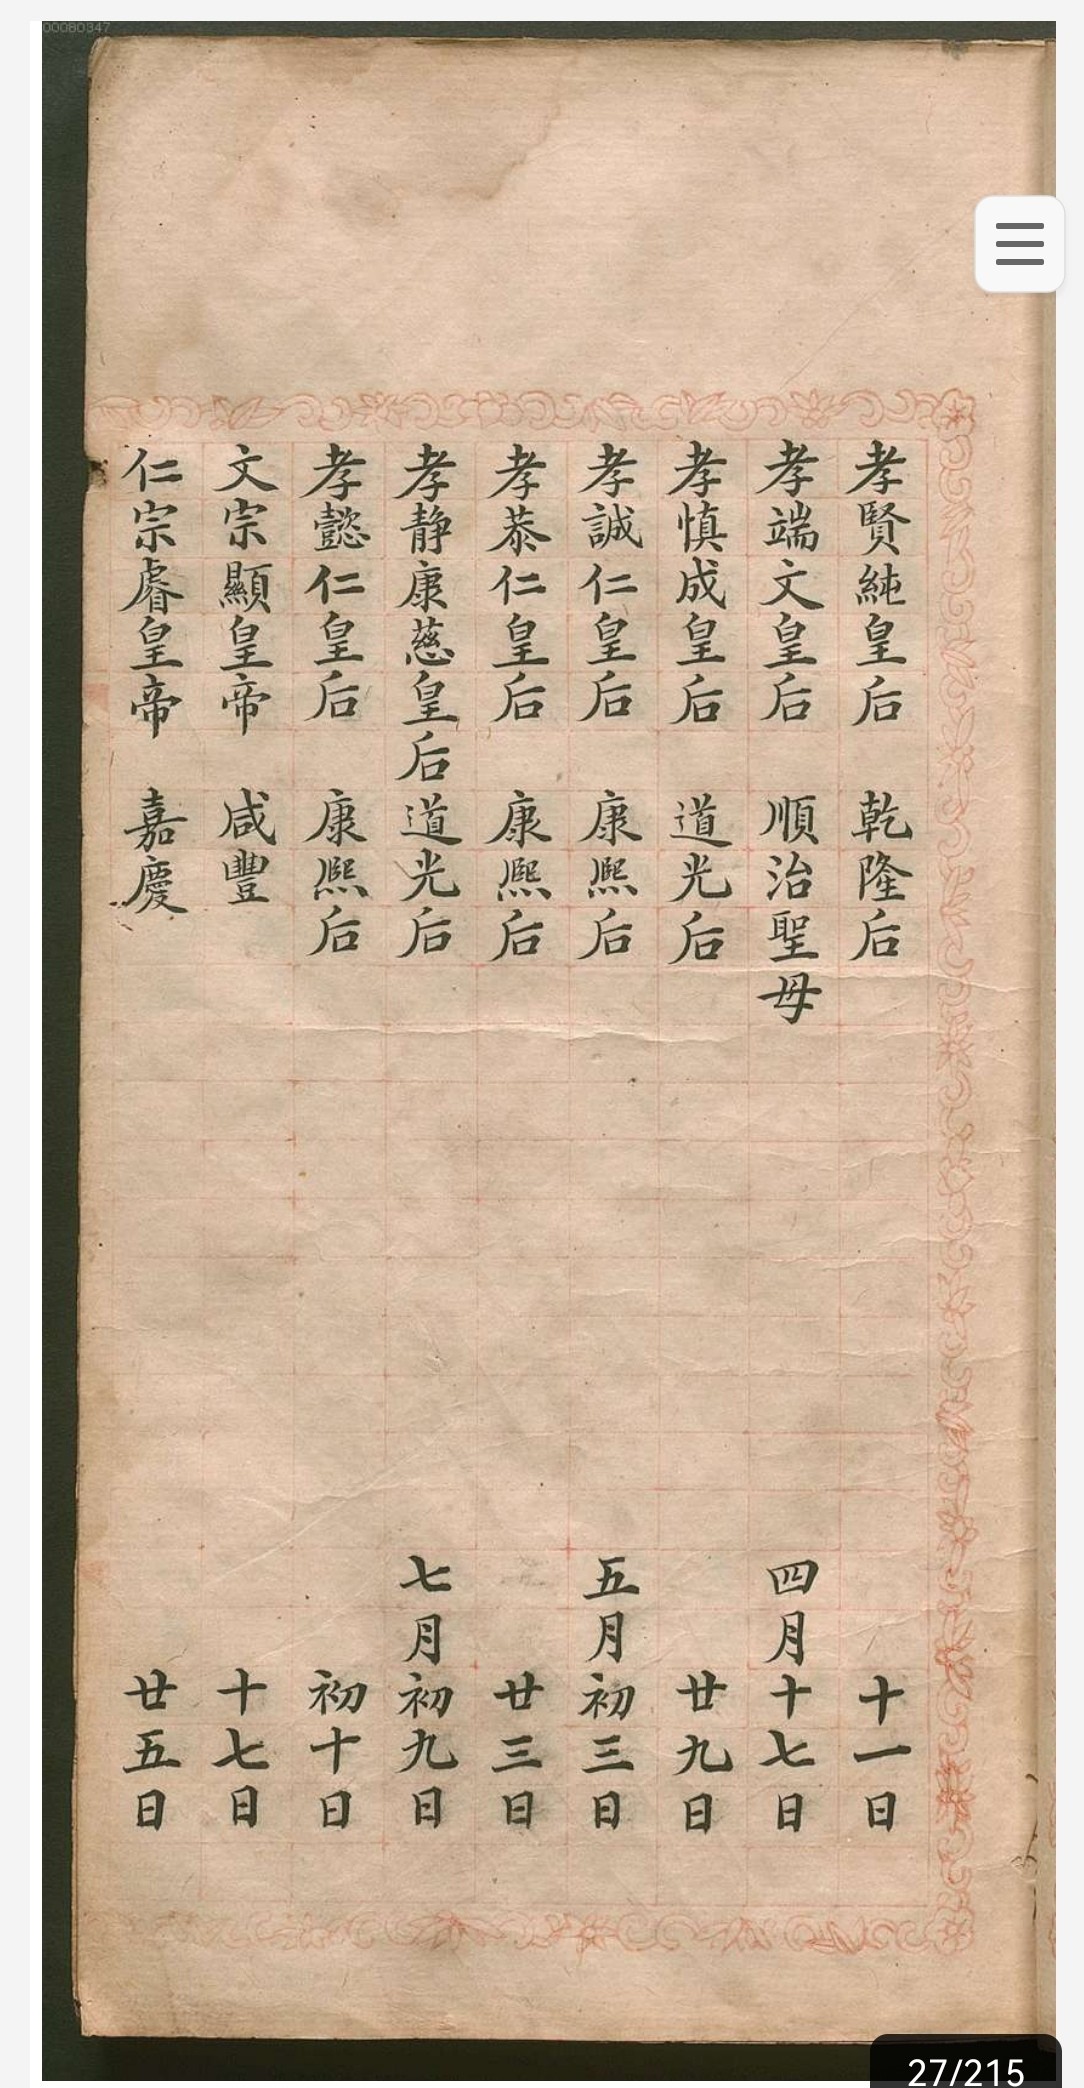 00080347
孝賢純皇后 乾隆后 十一日
孝端文皇后 順治聖母 四月十七日
孝慎成皇后 道光后 廿九日
孝誠仁皇后 康熙后 五月初三日
孝恭仁皇后 康熙后 廿三日
孝静康慈皇后 道光后 七月初九日
孝懿仁皇后 康熙后 初十日
文宗顯皇帝 咸豐 十七日
仁宗睿皇帝 嘉慶 廿五日
27/215